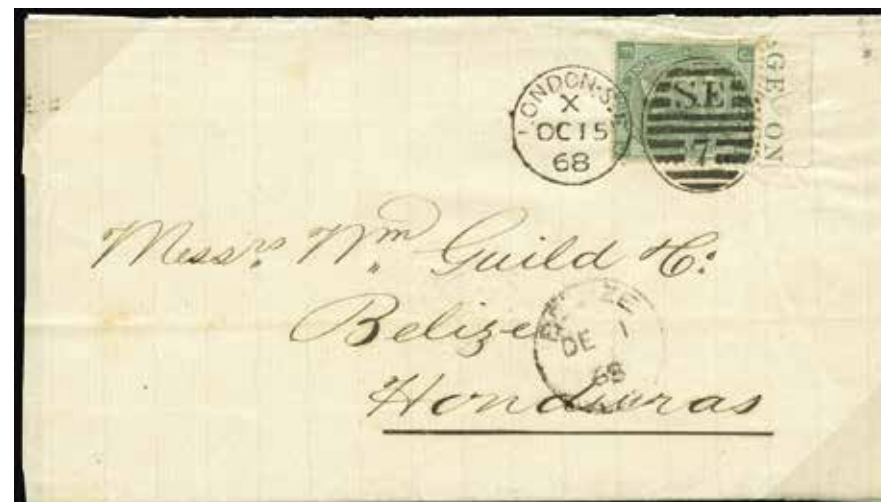 LONDON·S.E
X
OC 15
68
S.E
7
GE ON
Messrs Wm Guild & Co:
Belize
Honduras
BELIZE
DE 1
68